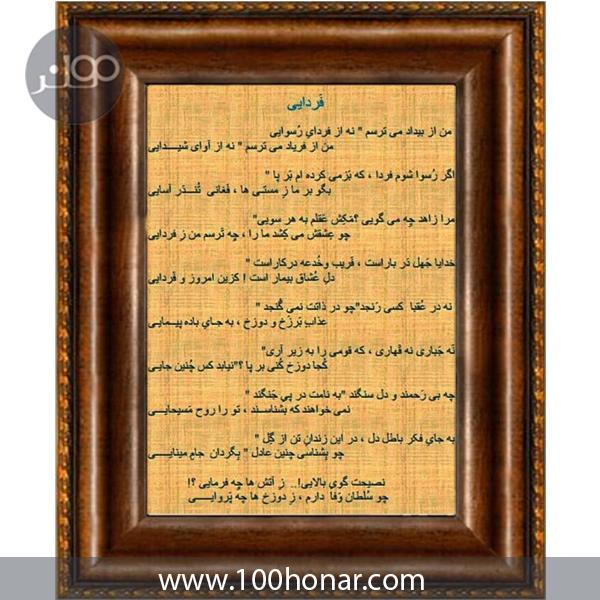 هنر
فَردایی
من از بیداد می ترسم " نه از فردایِ رُسوایی
من از فریاد می ترسم " نه از آوای شیـــدایی
اگر رُسوا شوم فردا ، که بَزمی کرده ام بَر پا "
بگو بر ما زِ مستـی ها ، فغانی تُنــدَر آسایی
مرا زاهد چِه می گویی ؟مَکِش عَقلم به هر سویی"
چو عِشقش می کِشد ما را ، چِه تَرسم من زِ فردایی
خدایا جَهل دَر باراست ، فَریب وخُدعه درکاراست "
دلِ عُشاق بیمار است ! کزین امروز و فَردایی
نه در عُقبا کسی رَنجد"چو در ذاتت نمی گُنجد "
عذابِ بَرزَخ و دوزخ ، به جـایِ باده پیــمایی
نَه جَباری نه قَهاری ، که قومی را به زیر آری"
کُجا دوزخ کُنی بر پا ؟"نیابد کس چُنین جایی
چه بی رَحمند و دل سنگند "به نامت در پیِ جَنگند "
نمی خواهند که بشناسـند ، تو را روحِ مَسیحایـــی
به جایِ فکرِ باطل دل ، در این زندانِ تن از گِل "
چو بِشناسی چنین عادل " بِگردان جامِ مینایـــی
نصیحت گویِ بالایی!.. زِ آتش ها چه فرمایی ؟!
چو سُلطانِ وَفا دارم ، زِ دوزخ ها چِه پَروایـــــی
www.100honar.com